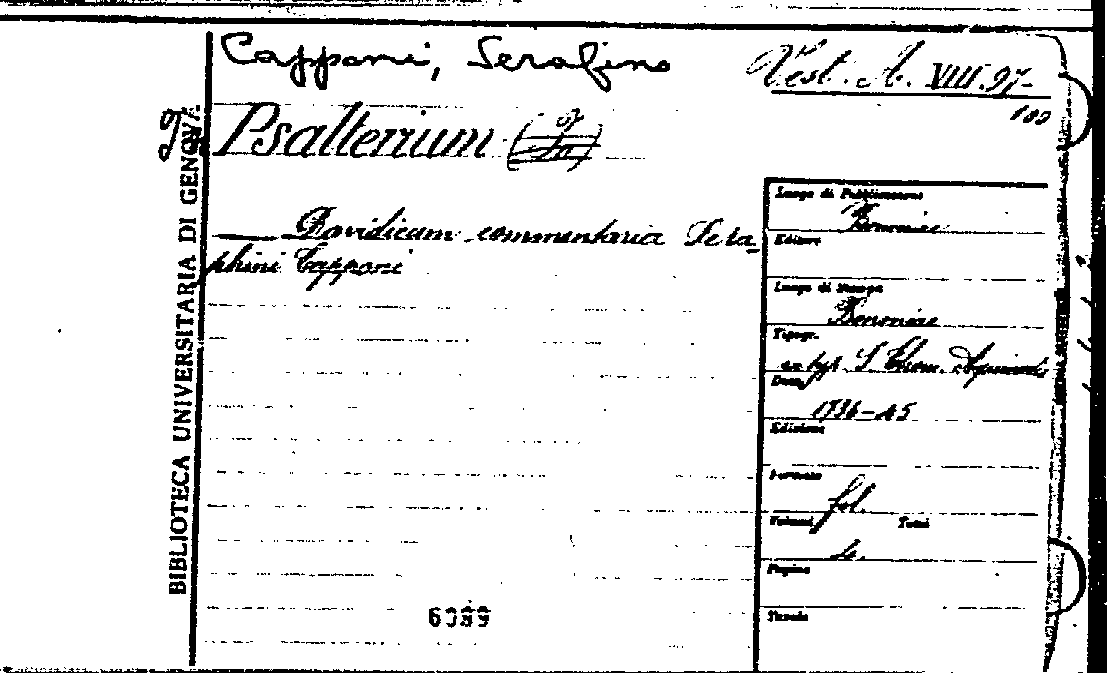 Capponi, Serafino
Vest. A. VIII. 97-
100
Psalterium
BIBLIOTECA UNIVERSITARIA DI GENOVA
— Davidicum commentaria Sera-
phini Capponi
Luogo di Pubblicazione
Bononiae
Editore
Luogo di Stampa
Bononiae
Tipogr.
ex typ. S. Thom. Aquinatis
Data
1736-45
Edizione
Formato
fol.
Volumi
Tomi
4.
Pagine
Tavole
6089